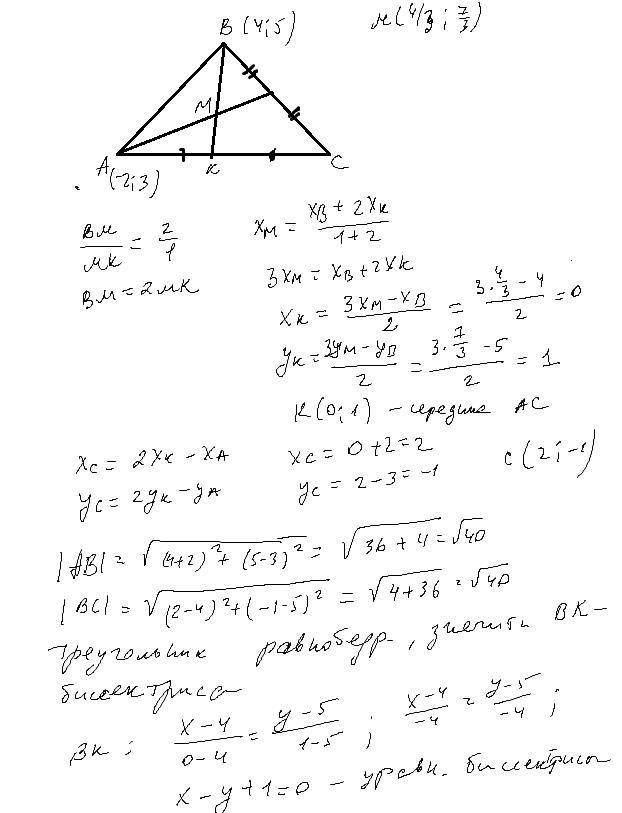 B (4;5)
M (4/3 ; 7/3)
M
A (-2;3)
K
C
BM/MK = 2/1
BM = 2MK
x_M = (x_B + 2x_K)/(1+2)
3x_M = x_B + 2x_K
x_K = (3x_M - x_B)/2 = (3·4/3 - 4)/2 = 0
y_K = (3y_M - y_B)/2 = (3·7/3 - 5)/2 = 1
K (0;1) - середина AC
x_C = 2x_K - x_A
x_C = 0+2=2
C (2;-1)
y_C = 2y_K - y_A
y_C = 2-3=-1
|AB| = √((4+2)² + (5-3)²) = √(36+4) = √40
|BC| = √((2-4)² + (-1-5)²) = √(4+36) = √40
треугольник равнобедр., значит BK -
биссектриса
BK: (x-4)/(0-4) = (y-5)/(1-5) ; (x-4)/-4 = (y-5)/-4 ;
x-y+1=0 - уравн. биссектрисы